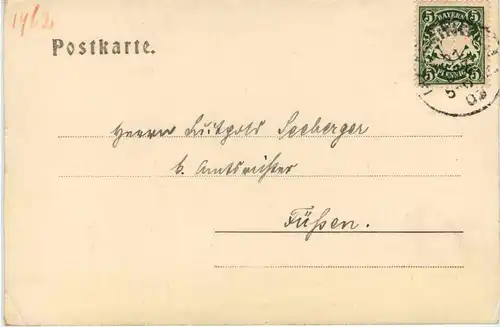 1962
Postkarte.
BAYERN
5 5
PFENNIG
5 5
Herrn Luitpold Seeberger
b. Amtsmeister
Füßen.